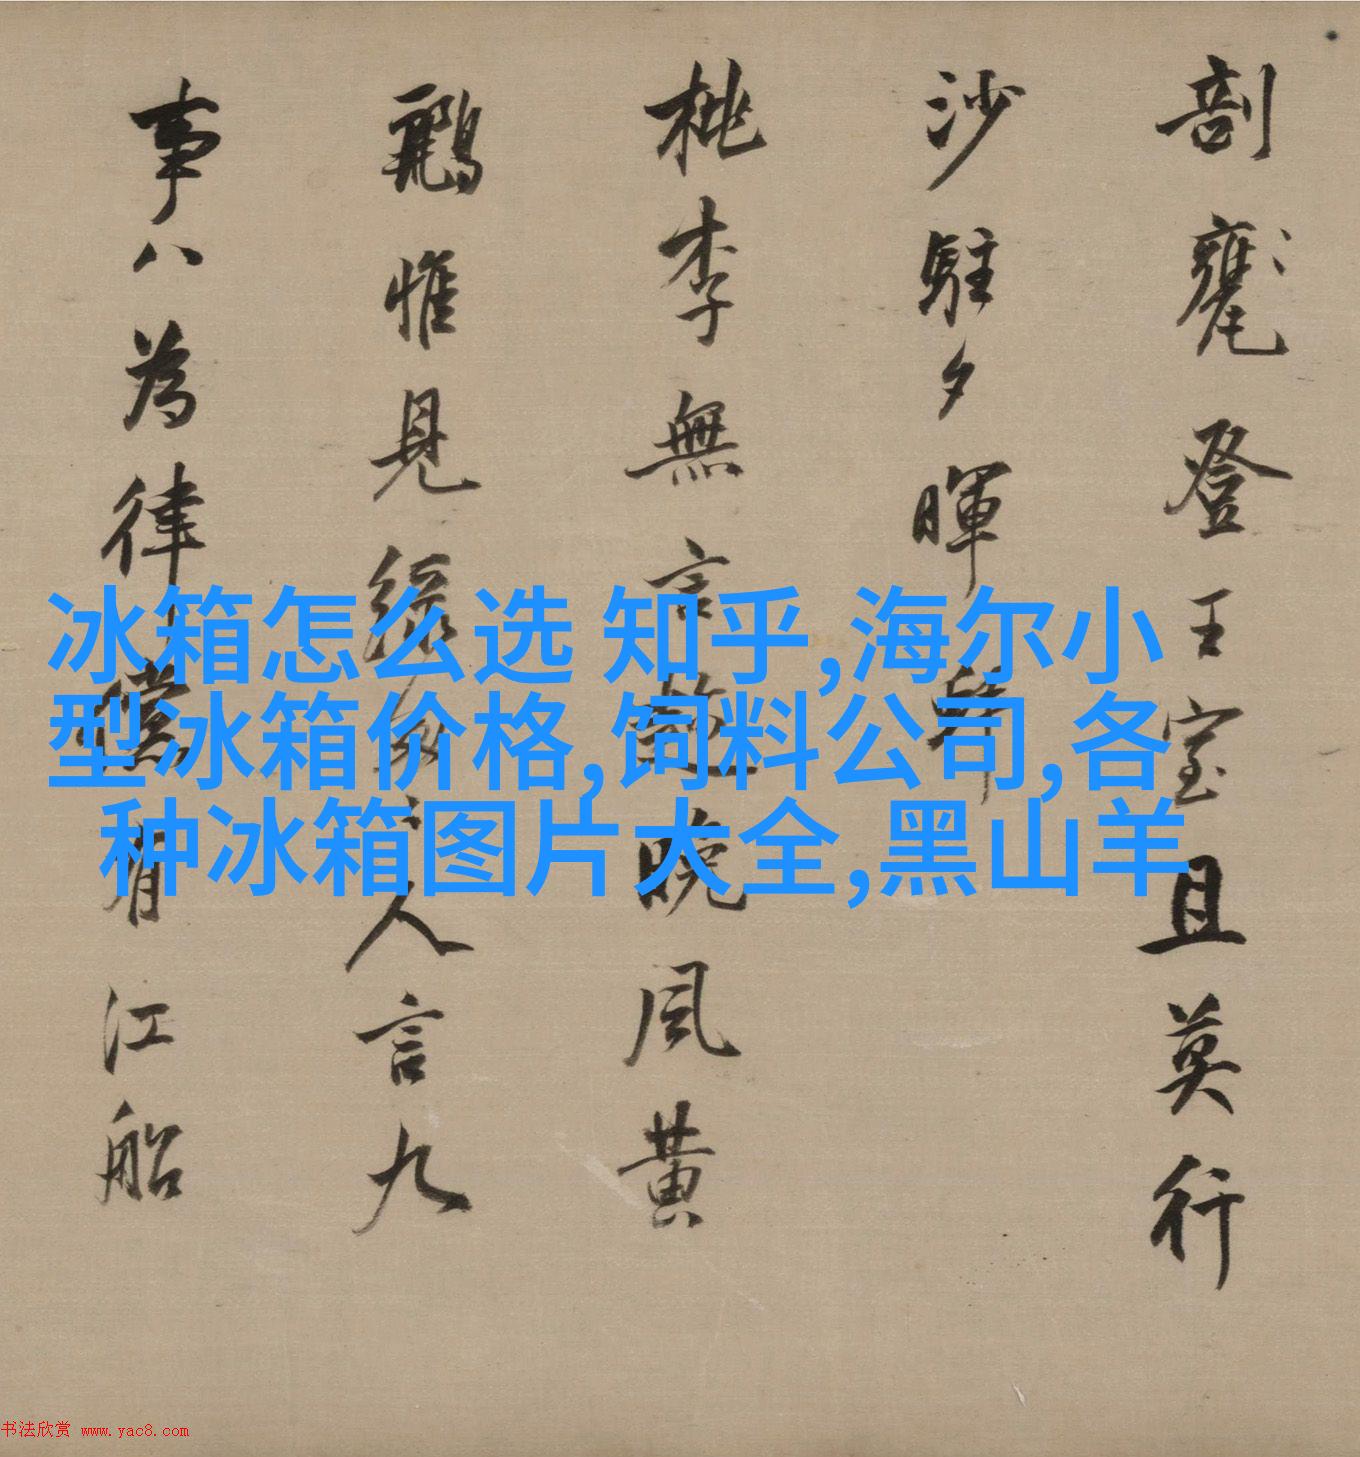 剖甕登王室且莫行
沙駐夕暉
桃李無言晚風黃
鸝惟見綠人言九
事八為律儻有江船
冰箱怎么选 知乎,海尔小
型冰箱价格,饲料公司,各
种冰箱图片大全,黑山羊
书法欣赏 www.yac8.com